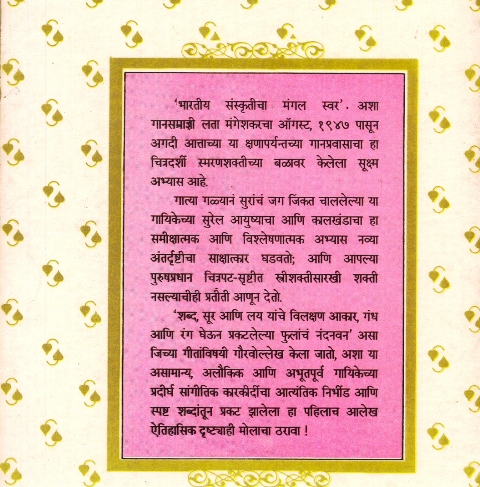 ‘भारतीय संस्कृतीचा मंगल स्वर’. अशा
गानसम्राज्ञी लता मंगेशकरचा ऑगस्ट, १९४७ पासून
अगदी आत्ताच्या या क्षणापर्यन्तच्या गानप्रवासाचा हा
चित्रदर्शी स्मरणशक्तीच्या बळावर केलेला सूक्ष्म
अभ्यास आहे.
गात्या गळ्यानं सुरांचं जग जिंकत चाललेल्या या
गायिकेच्या सुरेल आयुष्याचा आणि कालखंडाचा हा
समीक्षात्मक आणि विश्लेषणात्मक अभ्यास नव्या
अंतर्दृष्टीचा साक्षात्कार घडवतो; आणि आपल्या
पुरुषप्रधान चित्रपट-सृष्टीत स्त्रीशक्तीसारखी शक्ती
नसल्याचीही प्रतीती आणून देतो.
‘शब्द, सूर आणि लय यांचे विलक्षण आकार, गंध
आणि रंग घेऊन प्रकटलेल्या फुलांचं नंदनवन’ असा
जिच्या गीतांविषयी गौरवोल्लेख केला जातो, अशा या
असामान्य, अलौकिक आणि अभूतपूर्व गायिकेच्या
प्रदीर्घ सांगीतिक कारकीर्दीचा आत्यंतिक निर्भीड आणि
स्पष्ट शब्दांतून प्रकट झालेला हा पहिलाच आलेख
ऐतिहासिक दृष्ट्याही मोलाचा ठरावा !